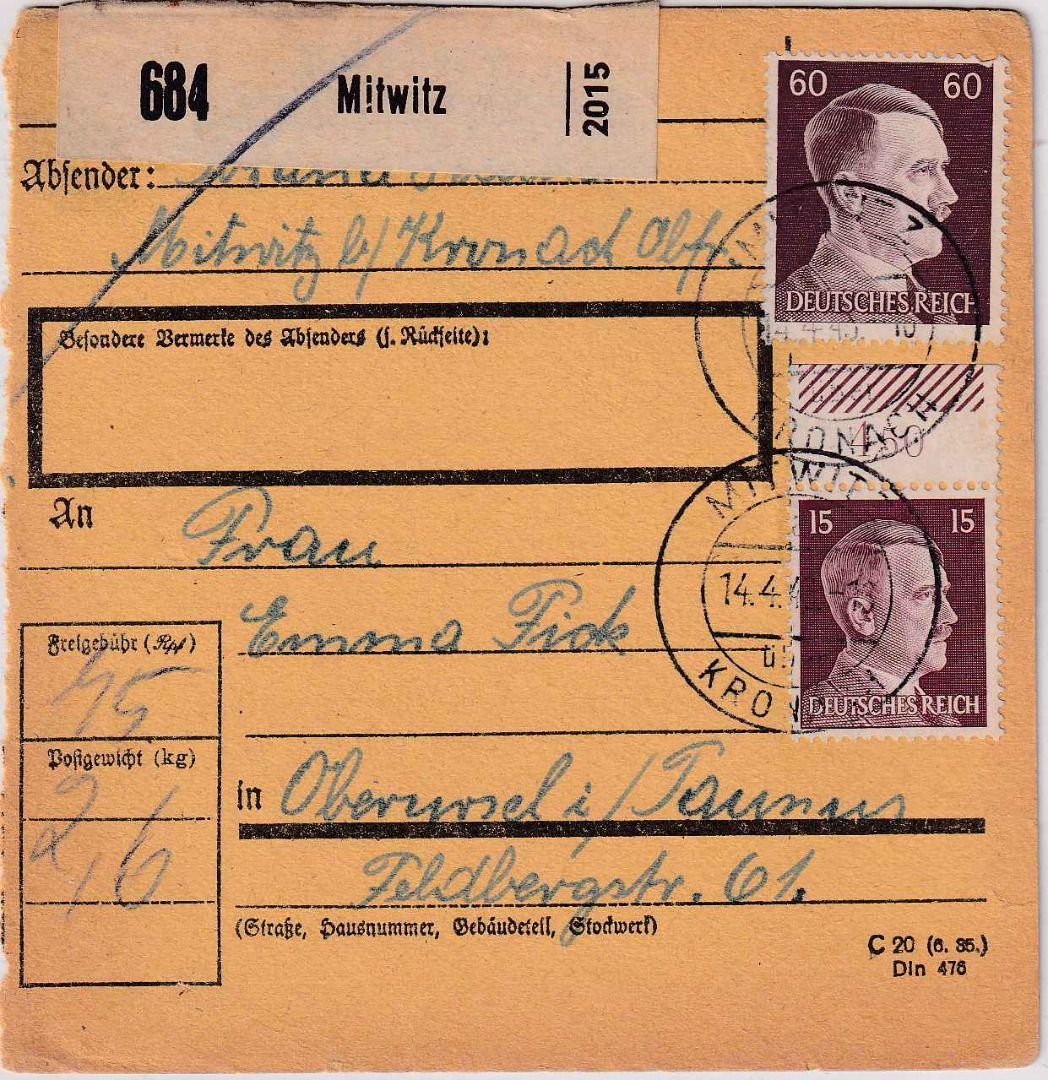 684 Mitwitz 2015
60 60
Absender:
Mitwitz b/ Kronach Obfr.
DEUTSCHES REICH
Besondere Vermerke des Absenders (s. Rückseite):
KRONACH
4,50
MITWITZ
An Frau
15 15
14.4.4
Emma Fick
KRONACH
DEUTSCHES REICH
Freigebühr (Rpf)
75
Postgewicht (kg)
2,6
in Oberursel i/Taunus
Feldbergstr. 61.
(Straße, Hausnummer, Gebäudeteil, Stockwerk)
C 20 (6. 35.)
Din 476